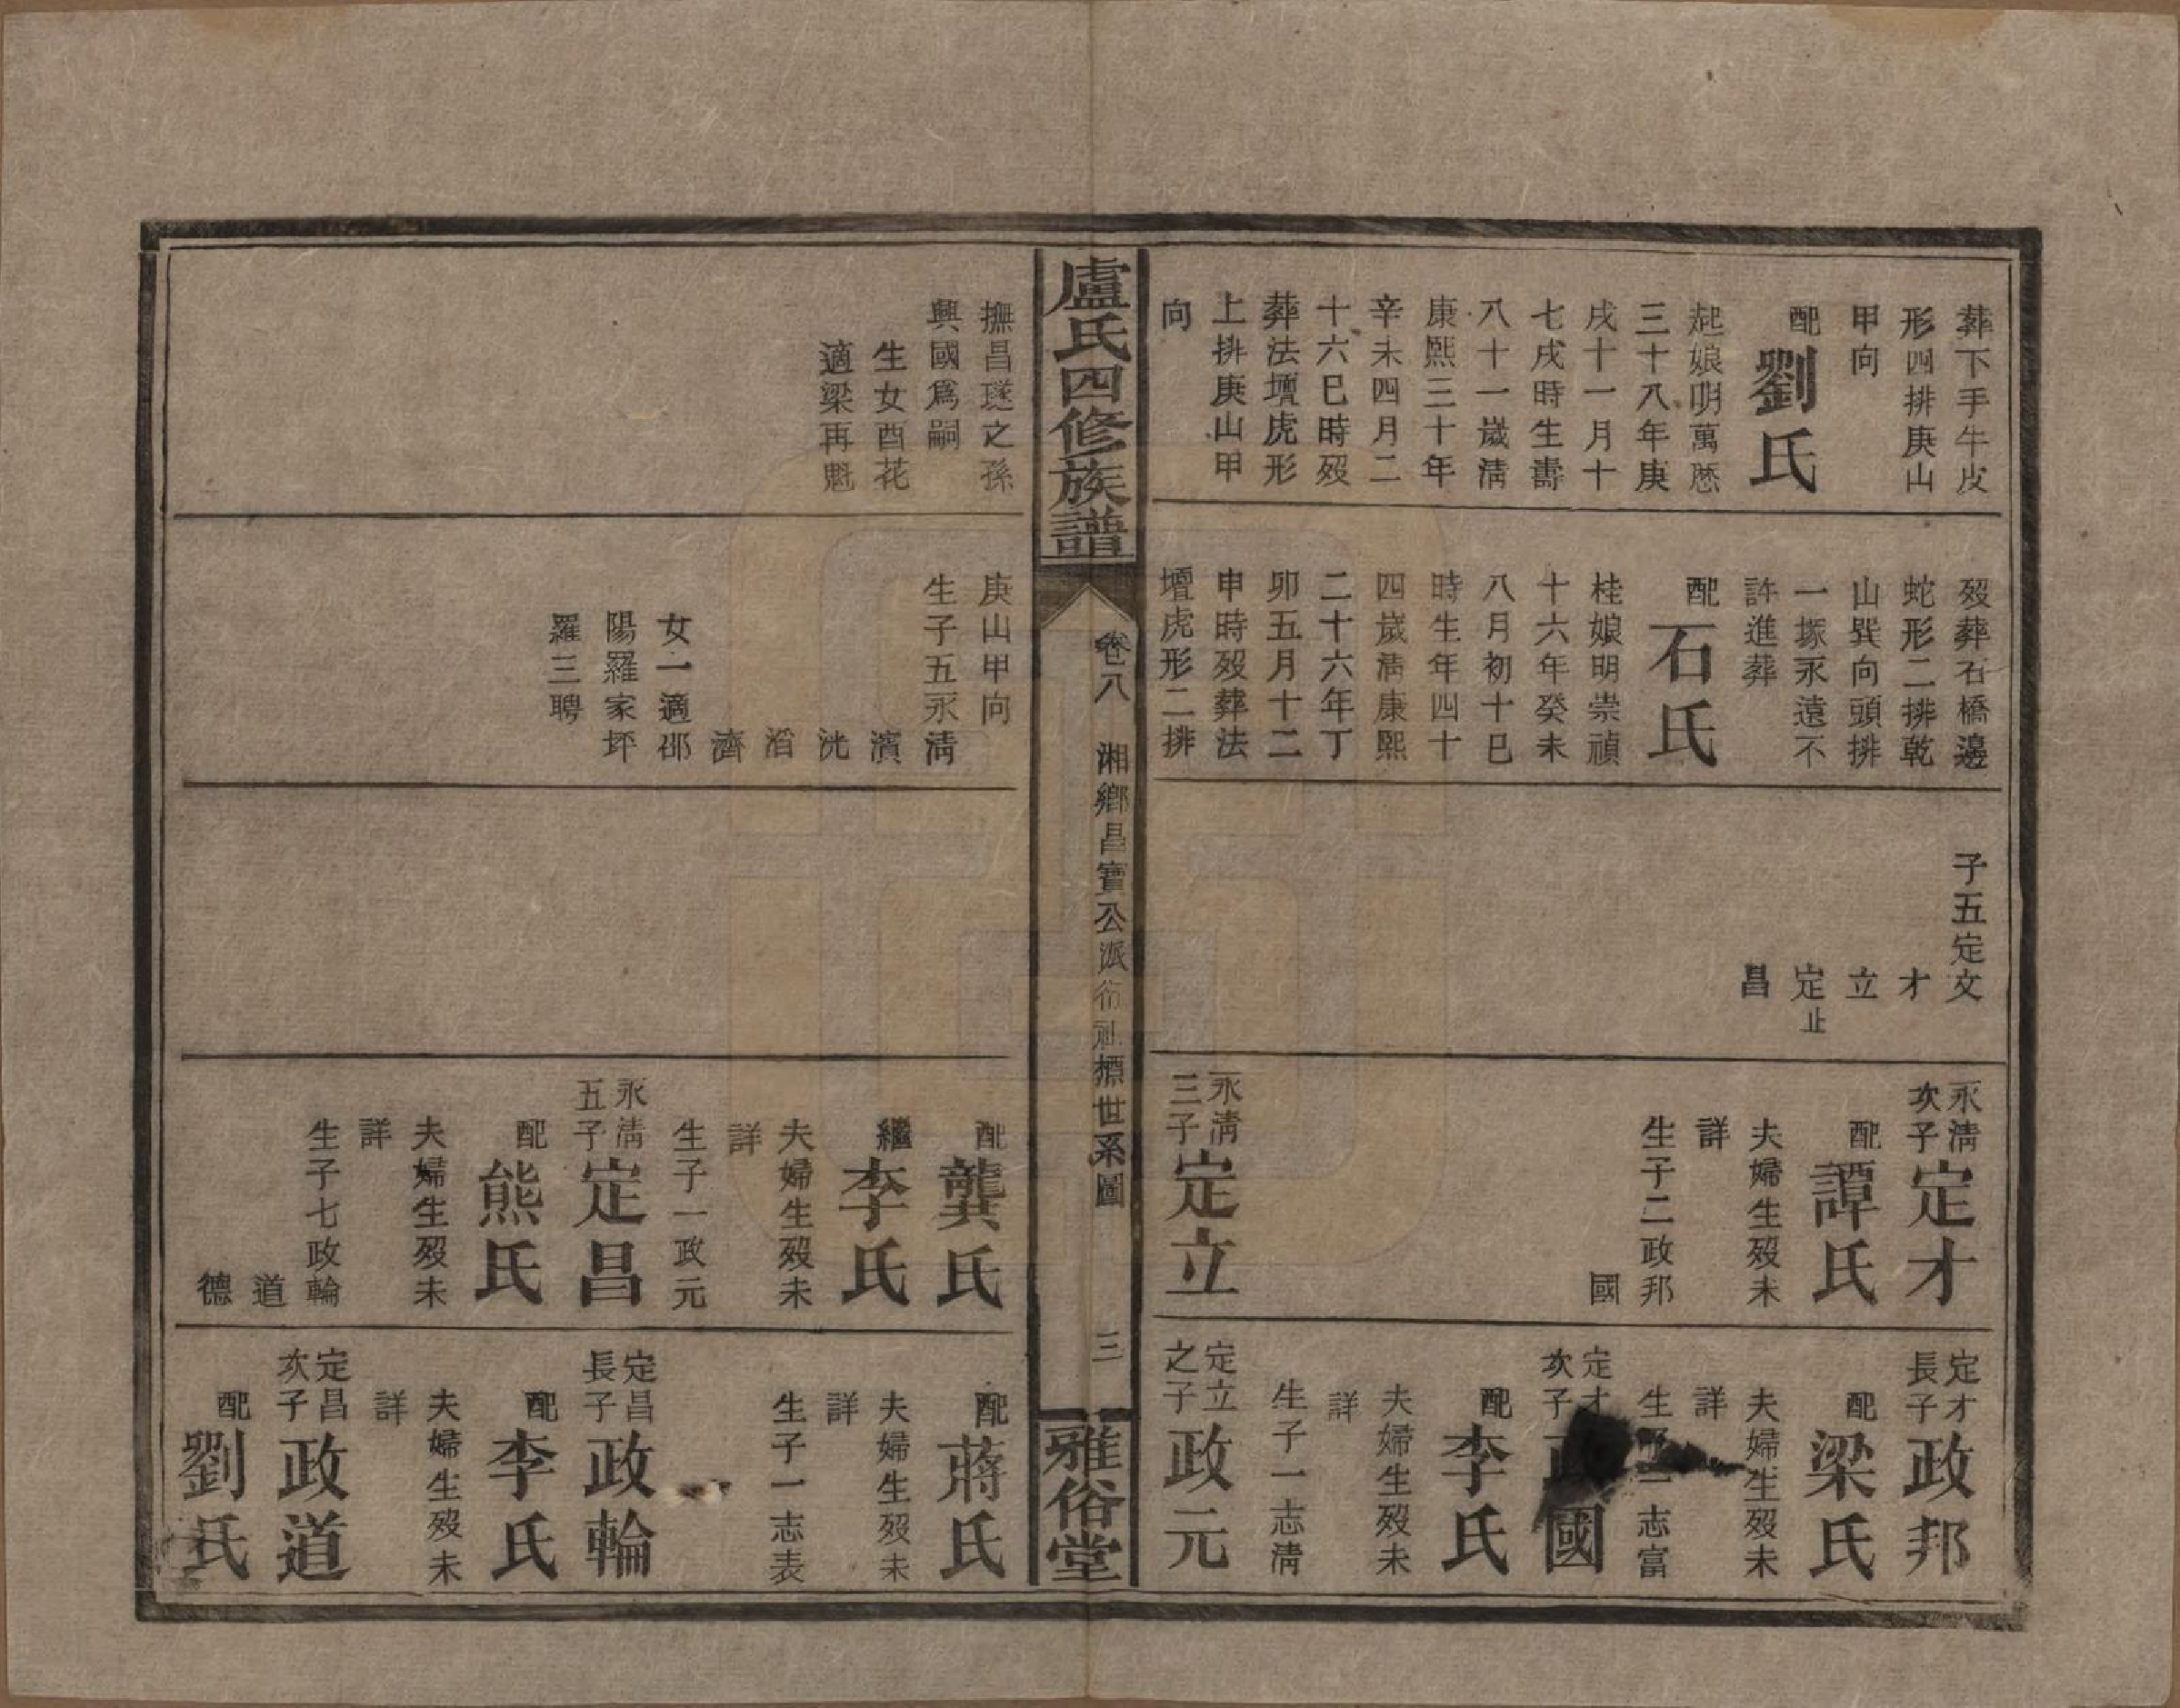 葬下手牛皮
形四排庚山
甲向
配劉氏
起娘明萬厯
三十八年庚
戌十一月十
七戌時生壽
八十一歲淸
康熙三十年
辛未四月二
十六巳時歿
葬法壇虎形
上排庚山甲
向
歿葬石橋邊
蛇形二排乾
山巽向頭排
一塚永遠不
許進葬
配石氏
桂娘明崇禎
十六年癸未
八月初十巳
時生年四十
四歲淸康熙
二十六年丁
卯五月十二
申時歿葬法
壇虎形二排
子五定文
才
立
定止
昌
永淸次子定才
配譚氏
夫婦生歿未
詳
生子二政邦
國
永淸三子定立
定才長子政邦
配梁氏
夫婦生歿未
詳
生子一志富
定才次子政國
配李氏
夫婦生歿未
詳
生子一志淸
定立之子政元
盧氏四修族譜
卷八　湘鄉昌寶公派衍祉摽世系圖　三
雅俗堂
撫昌璲之孫
興國爲嗣
生女酉花
適梁再魁
庚山甲向
生子五永淸
濱
洸
滔
濟
女一適邵
陽羅家坪
羅三聘
配龔氏
繼李氏
夫婦生歿未
詳
生子一政元
永淸五子定昌
配熊氏
夫婦生歿未
詳
生子七政輪
道
德
配蔣氏
夫婦生歿未
詳
生子一志表
定昌長子政輪
配李氏
夫婦生歿未
詳
定昌次子政道
配劉氏